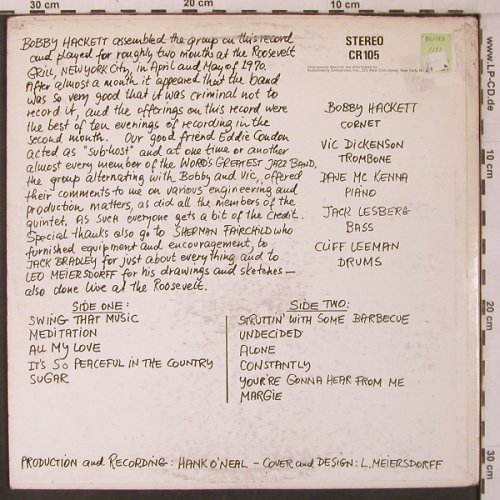 30 cm
20 cm
10 cm
BOBBY HACKETT assembled the group on this record
and played for roughly two months at the Roosevelt
GRILL, NEW YORK CITY, in April and May of 1970.
After almost a month it appeared that the band
was so very good that it was criminal not to
record it, and the offerings on this record were
the best of ten evenings of recording in the
second month. Our good friend Eddie Condon
acted as "sub-host" and at one time or another
almost every member of the WORLD'S GREATEST JAZZ BAND,
the group alternating with Bobby and Vic, offered
their comments to me on various engineering and
production matters, as did all the members of the
quintet. As such everyone gets a bit of the credit.
Special thanks also go to SHERMAN FAIRCHILD who
furnished equipment and encouragement, to
JACK BRADLEY for just about everything and to
LEO MEIERSDORFF for his drawings and sketches —
also done live at the Roosevelt.
STEREO
CR 105
BOBBY HACKETT
CORNET
VIC DICKENSON
TROMBONE
DAVE MC KENNA
PIANO
JACK LESBERG
BASS
CLIFF LEEMAN
DRUMS
SIDE ONE:
SWING THAT MUSIC
MEDITATION
ALL MY LOVE
IT'S SO PEACEFUL IN THE COUNTRY
SUGAR
SIDE TWO:
STRUTTIN' WITH SOME BARBECUE
UNDECIDED
ALONE
CONSTANTLY
YOU'RE GONNA HEAR FROM ME
MARGIE
PRODUCTION and RECORDING: HANK O'NEAL – COVER and DESIGN: L. MEIERSDORFF
© www.LP-CD.de
10 cm
20 cm
30 cm